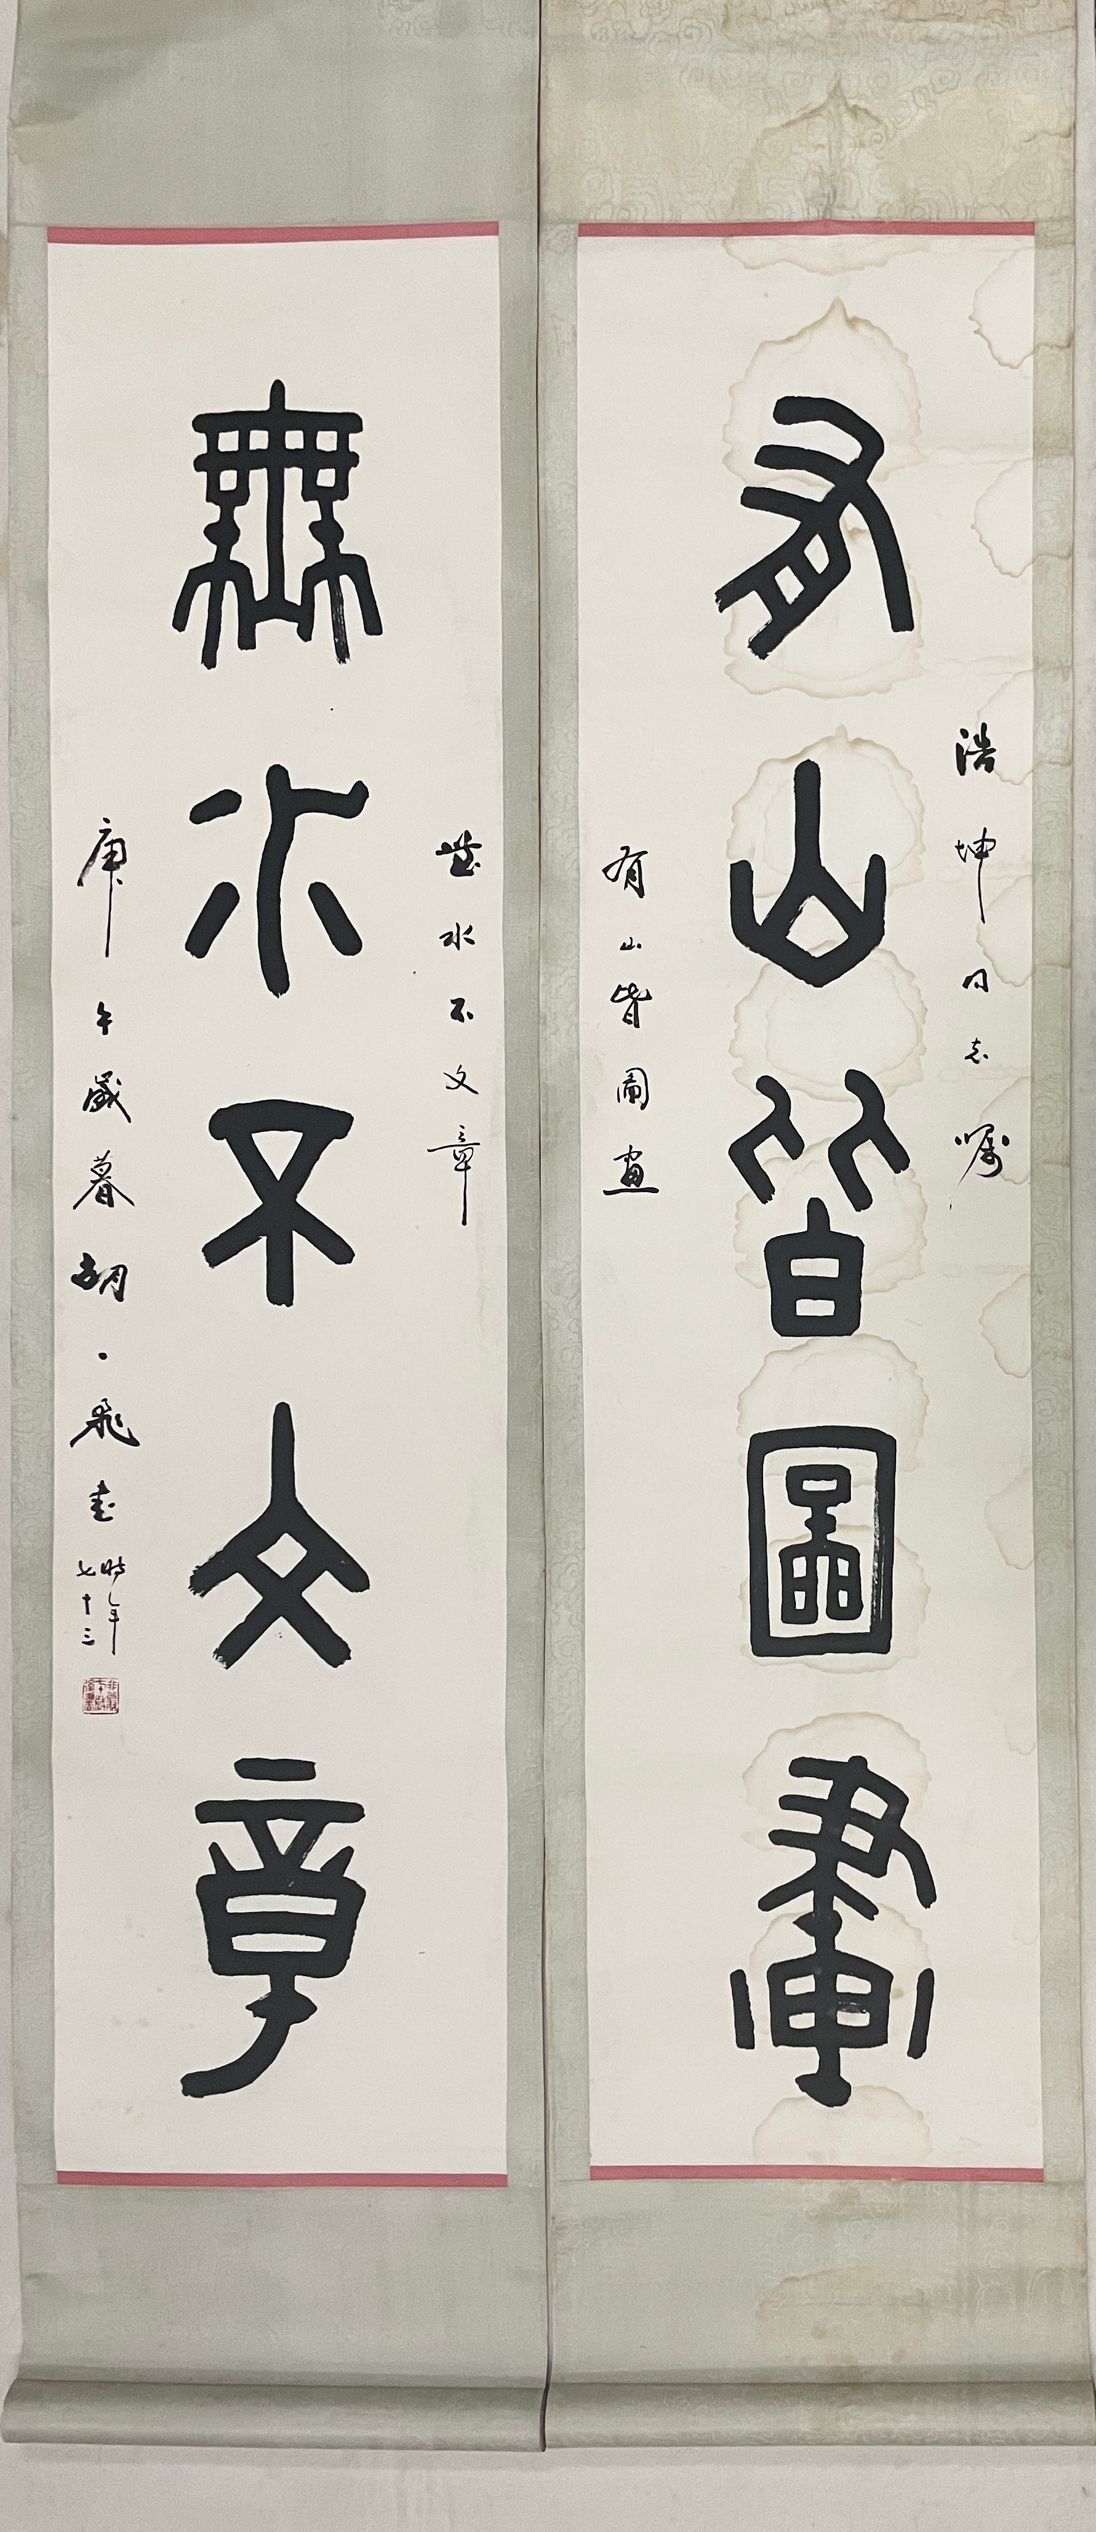 浩坤同志嘱
有山皆圖畫
有山皆圖画
無水不文章
無水不文章
庚午歲暮胡·飛書
時年
七十三